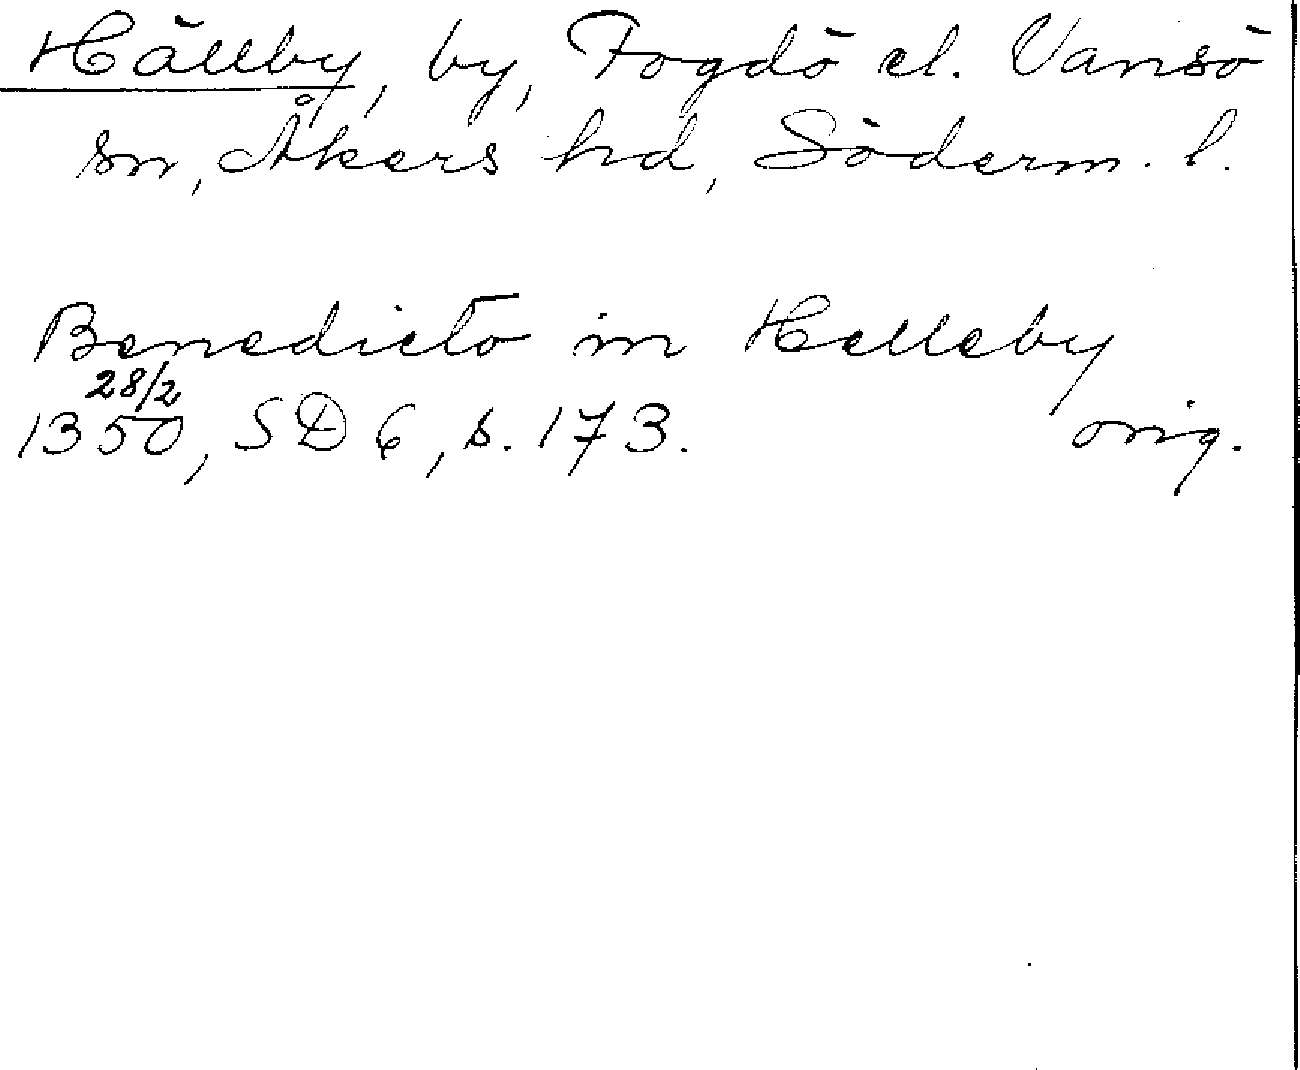 Hällby, by, Fogdö el. Vansö
sn, Åkers hd, Söderm. l.
Benedicto in Helleby
28/2
1350, SD 6, s. 173. orig.